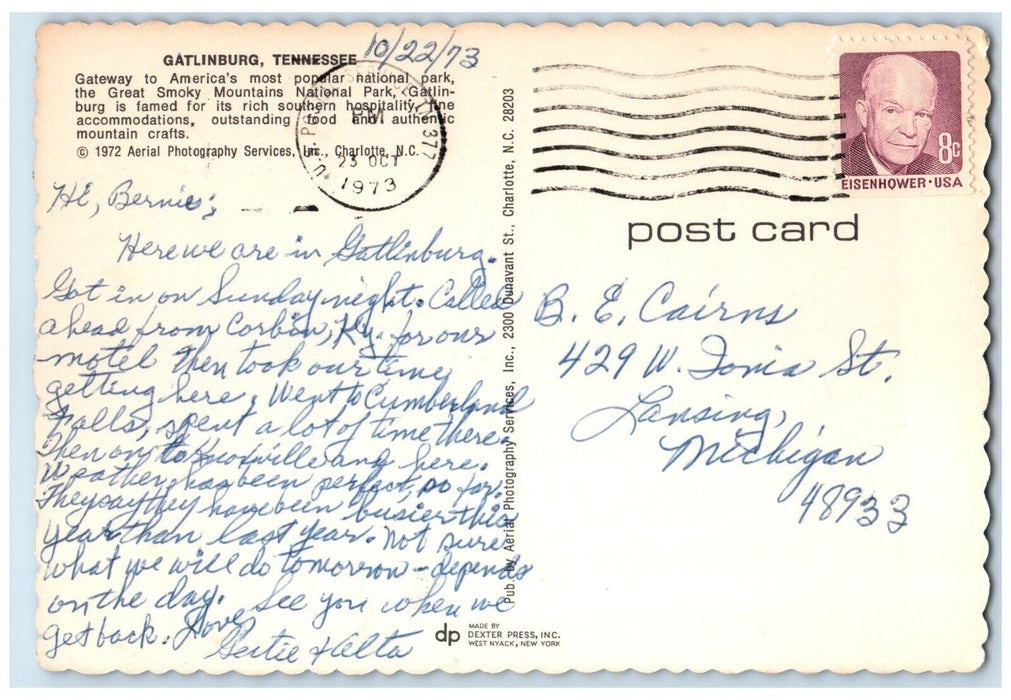 GATLINBURG, TENNESSEE 10/22/73
Gateway to America's most popular national park,
the Great Smoky Mountains National Park, Gatlin-
burg is famed for its rich southern hospitality, fine
accommodations, outstanding food and authentic
mountain crafts.
© 1972 Aerial Photography Services, Inc., Charlotte, N.C.
PM
23 OCT
1973
8c
EISENHOWER · USA
post card
Hi, Bernie;
Here we are in Gatlinburg.
Got in on Sunday night. Called
ahead from Corbin, Ky. for our
motel then took our time
getting here. Went to Cumberland
Falls, spent a lot of time there.
Then on to Knoxville and here.
Weather has been perfect, so far.
They say they have been busier this
year than last year. Not sure
what we will do tomorrow - depends
on the day. See you when we
get back. Love
Gertie & Alta
Pub. by Aerial Photography Services, Inc., 2300 Dunavant St., Charlotte, N.C. 28203
B. E. Cairns
429 W. Ionia St.
Lansing,
Michigan
48933
dp MADE BY
DEXTER PRESS, INC.
WEST NYACK, NEW YORK